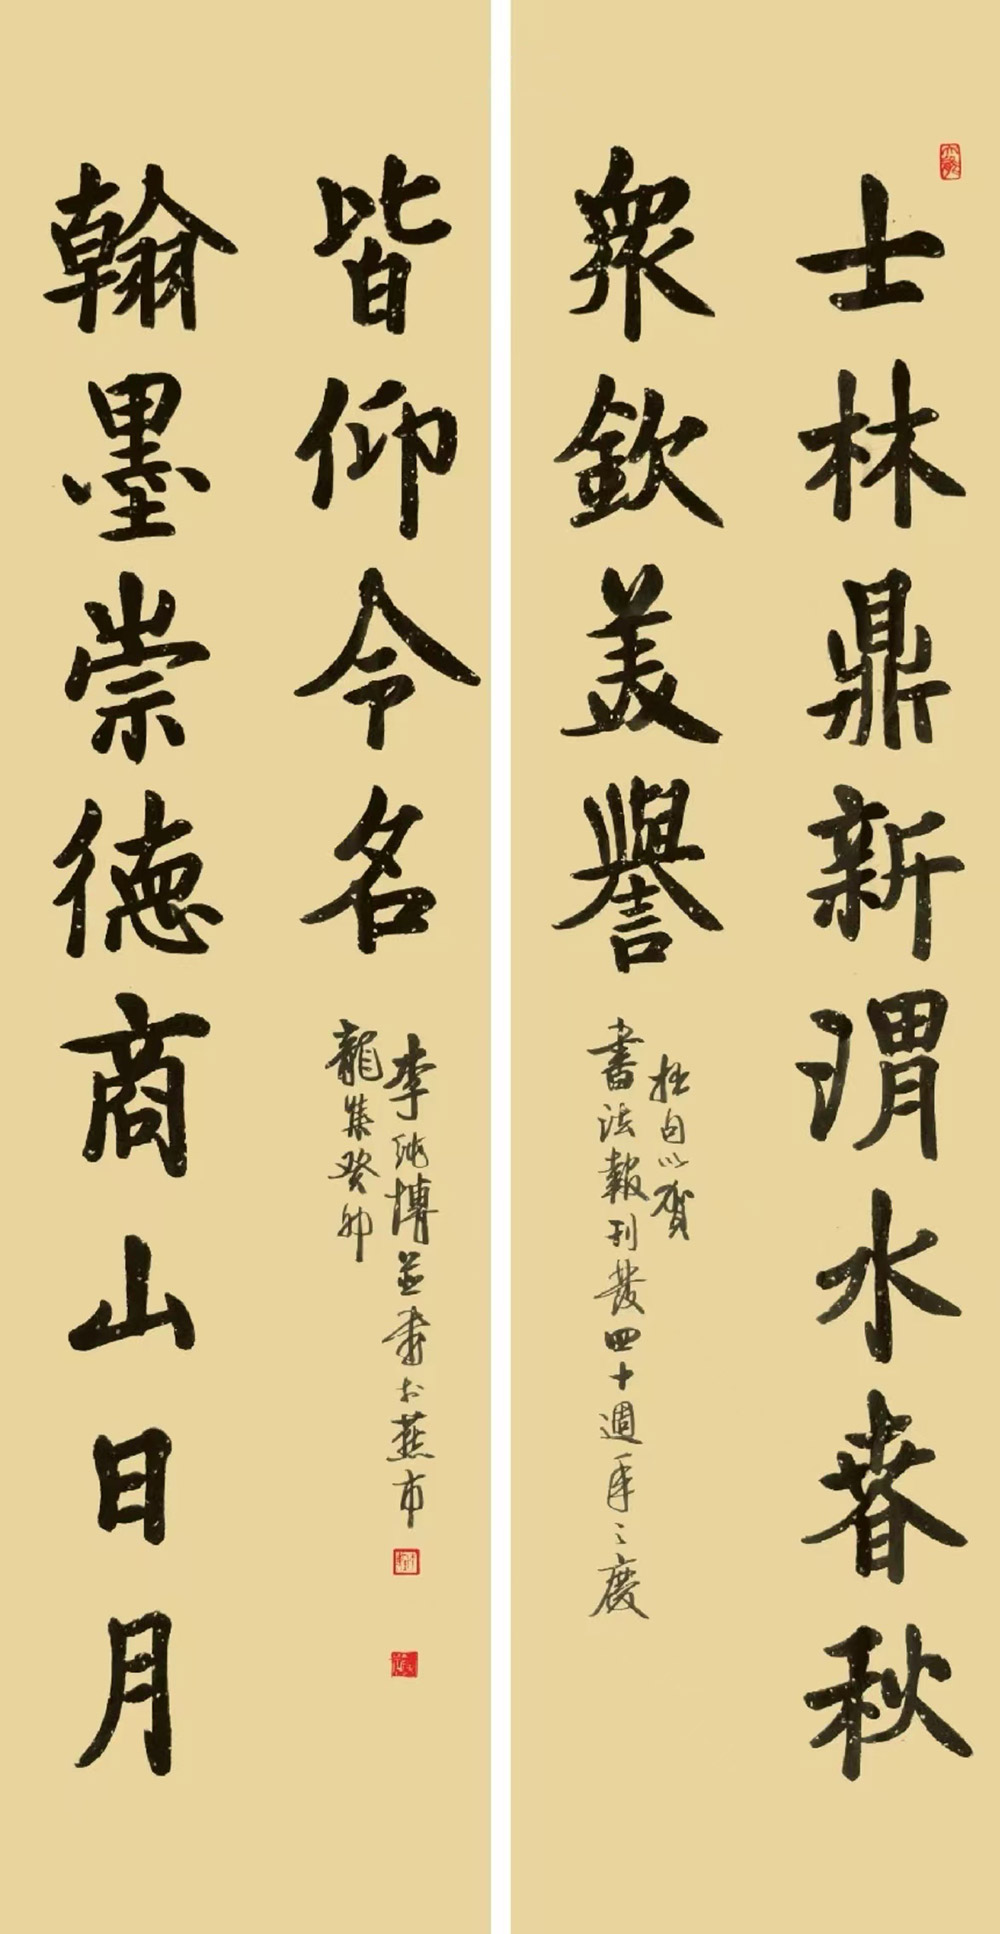 士林鼎新渭水春秋
眾欽美譽
拙句以賀
書法報刊發四十週年之慶
翰墨崇德商山日月
皆仰令名
龍集癸卯
李純博並書於燕市